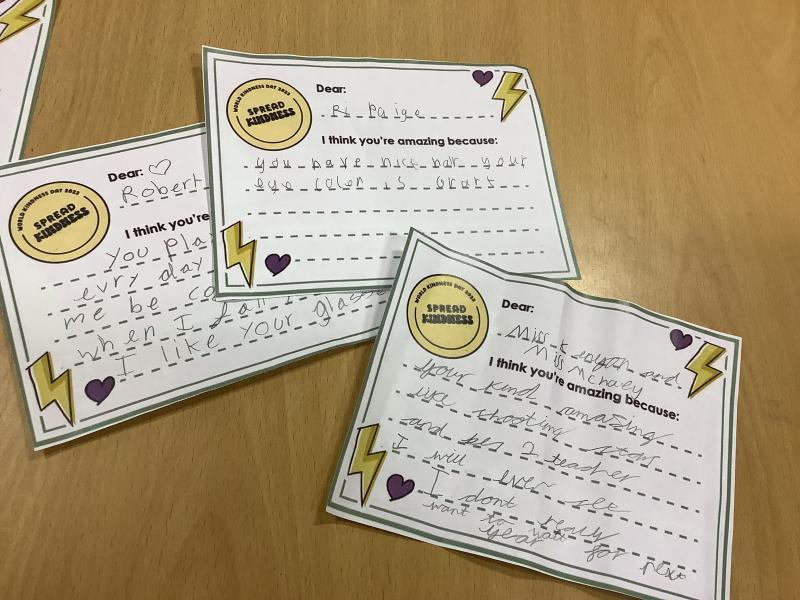 WORLD KINDNESS DAY 2022
SPREAD
KINDNESS
Dear:
Ri Paige
I think you're amazing because:
you have nice hair your
eye color is
WORLD KINDNESS DAY 2022
SPREAD
KINDNESS
Dear: ♡
Robert
I think you're
you pla
evry day
me be
when I fall
I like your
WORLD KINDNESS DAY 2022
SPREAD
KINDNESS
Dear:
Miss and
Miss
I think you're amazing because:
your kind amazing
like shooting stars
and bes 2 teacher
I will ever see
I dont really
want to wait for next
year